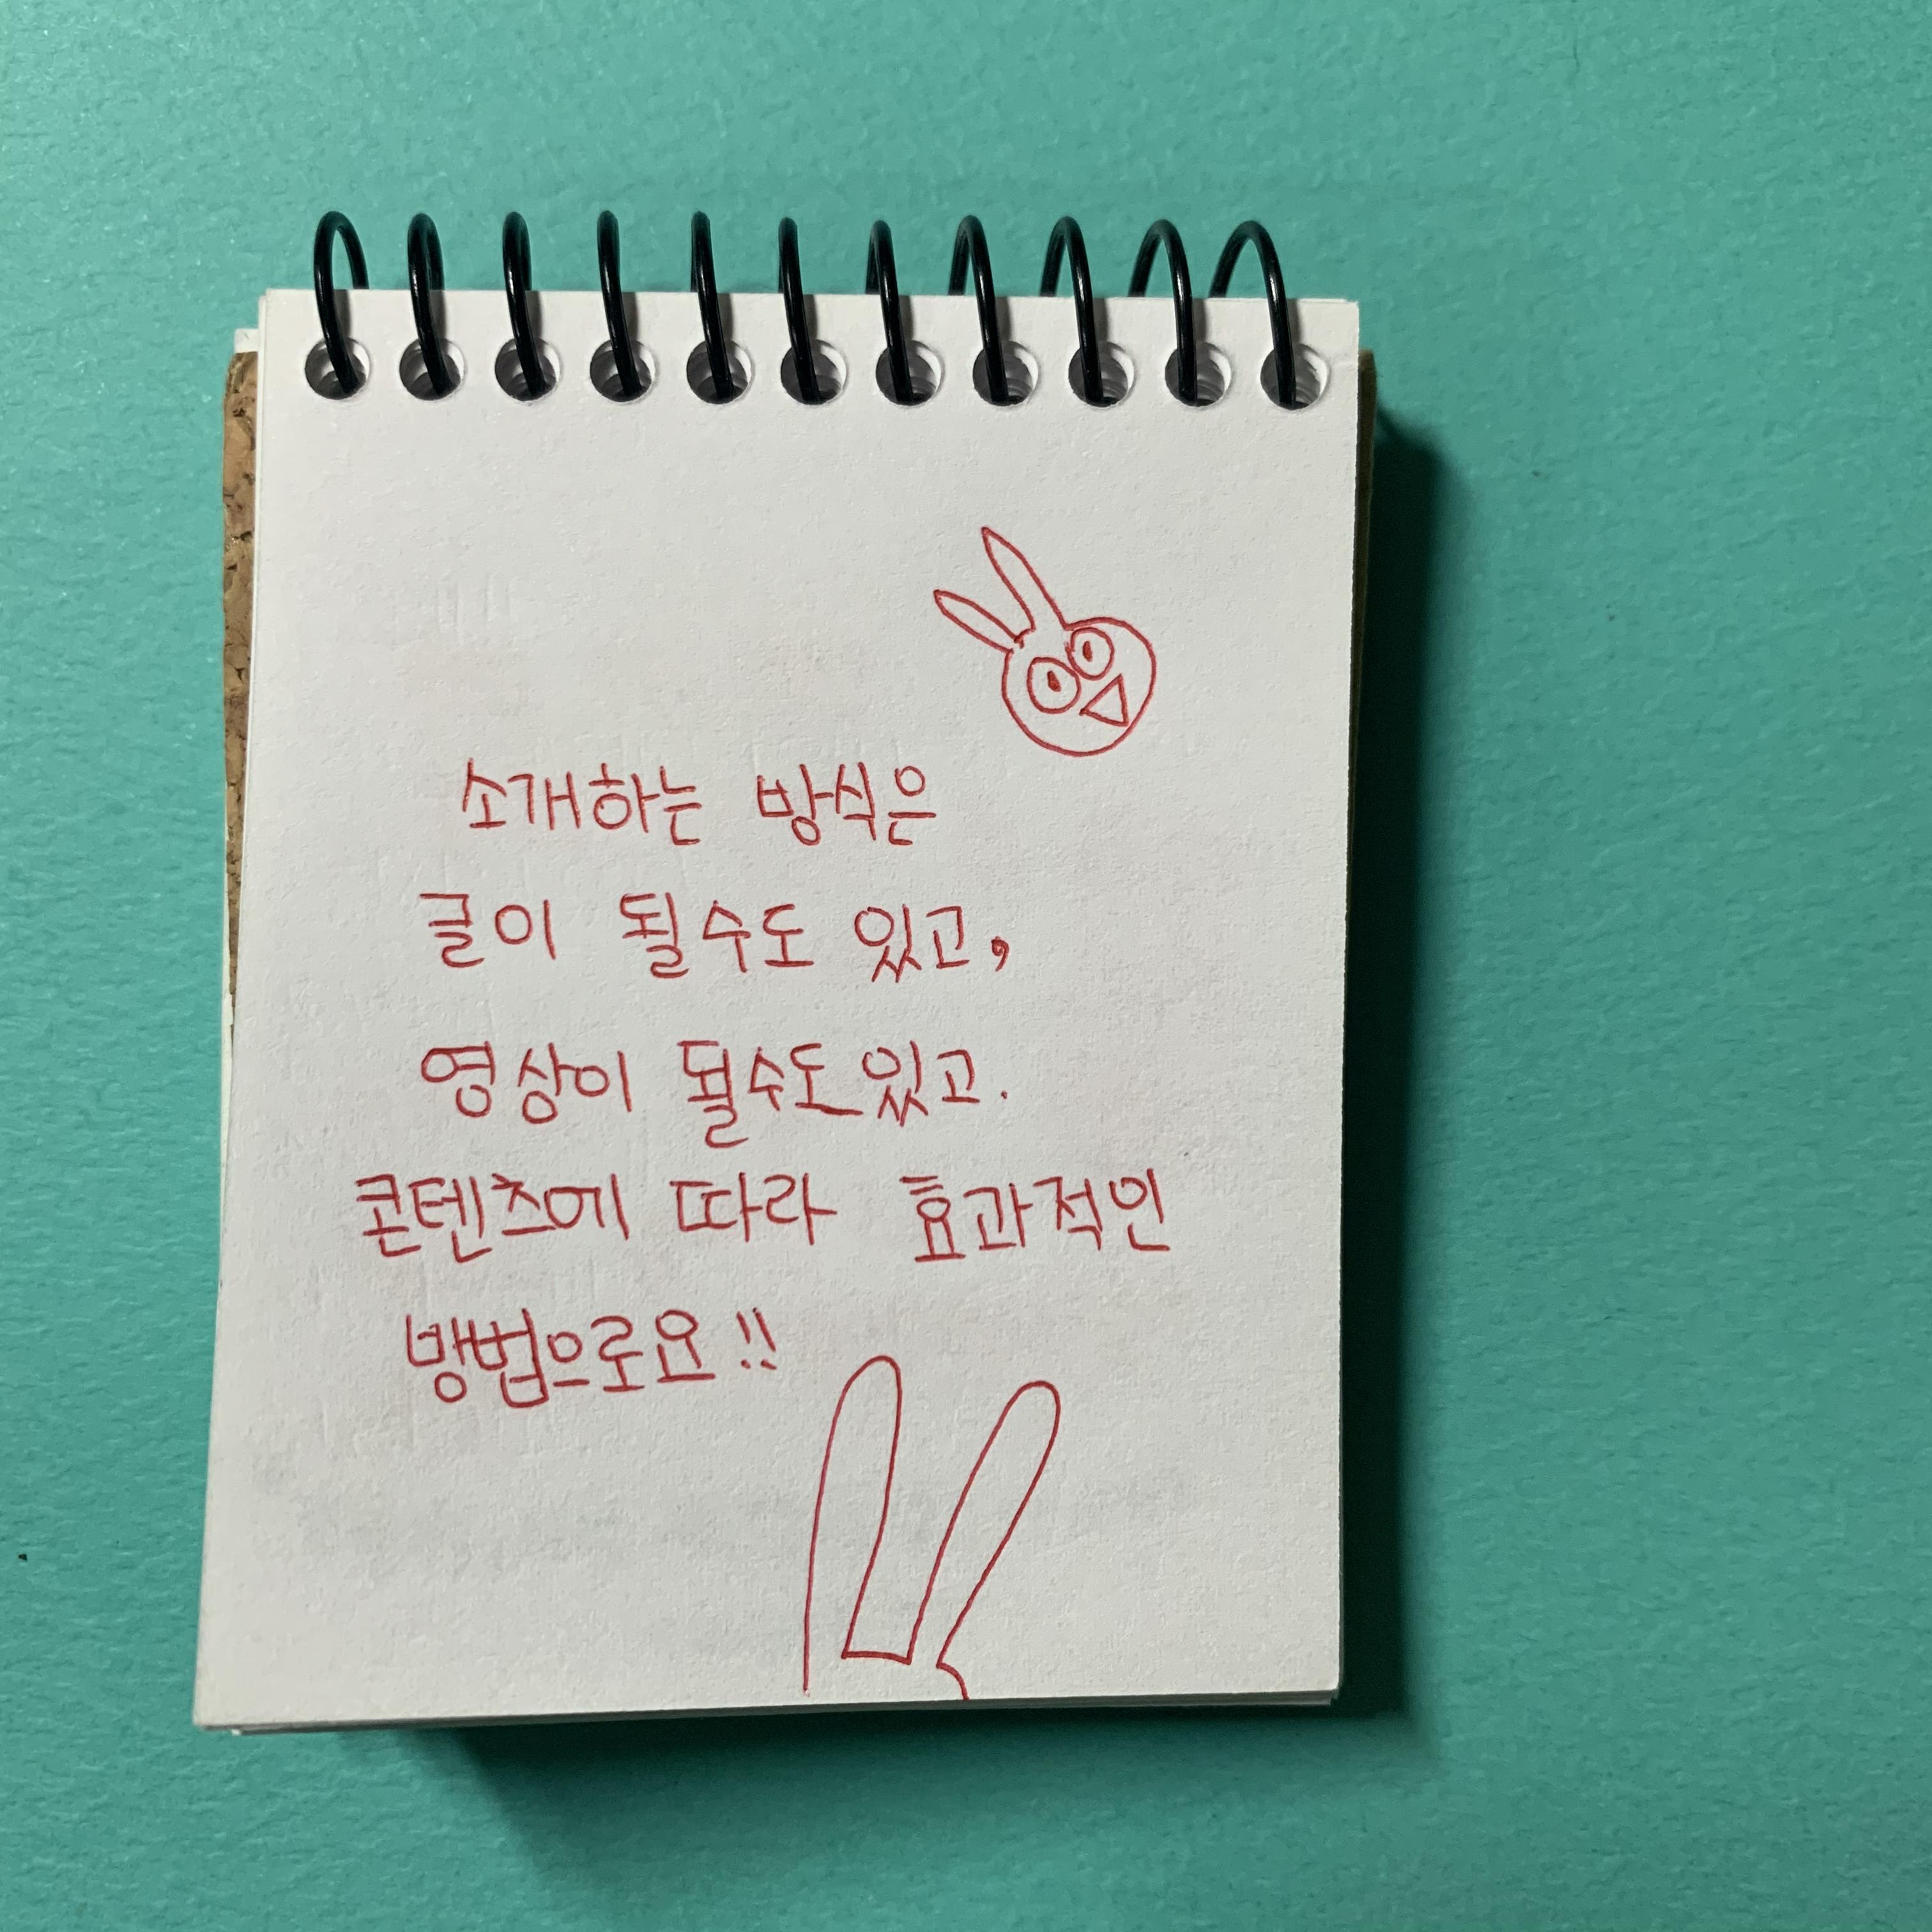 소개하는 방식은
글이 될수도 있고,
영상이 될수도 있고.
콘텐츠에 따라 효과적인
방법으로요!!